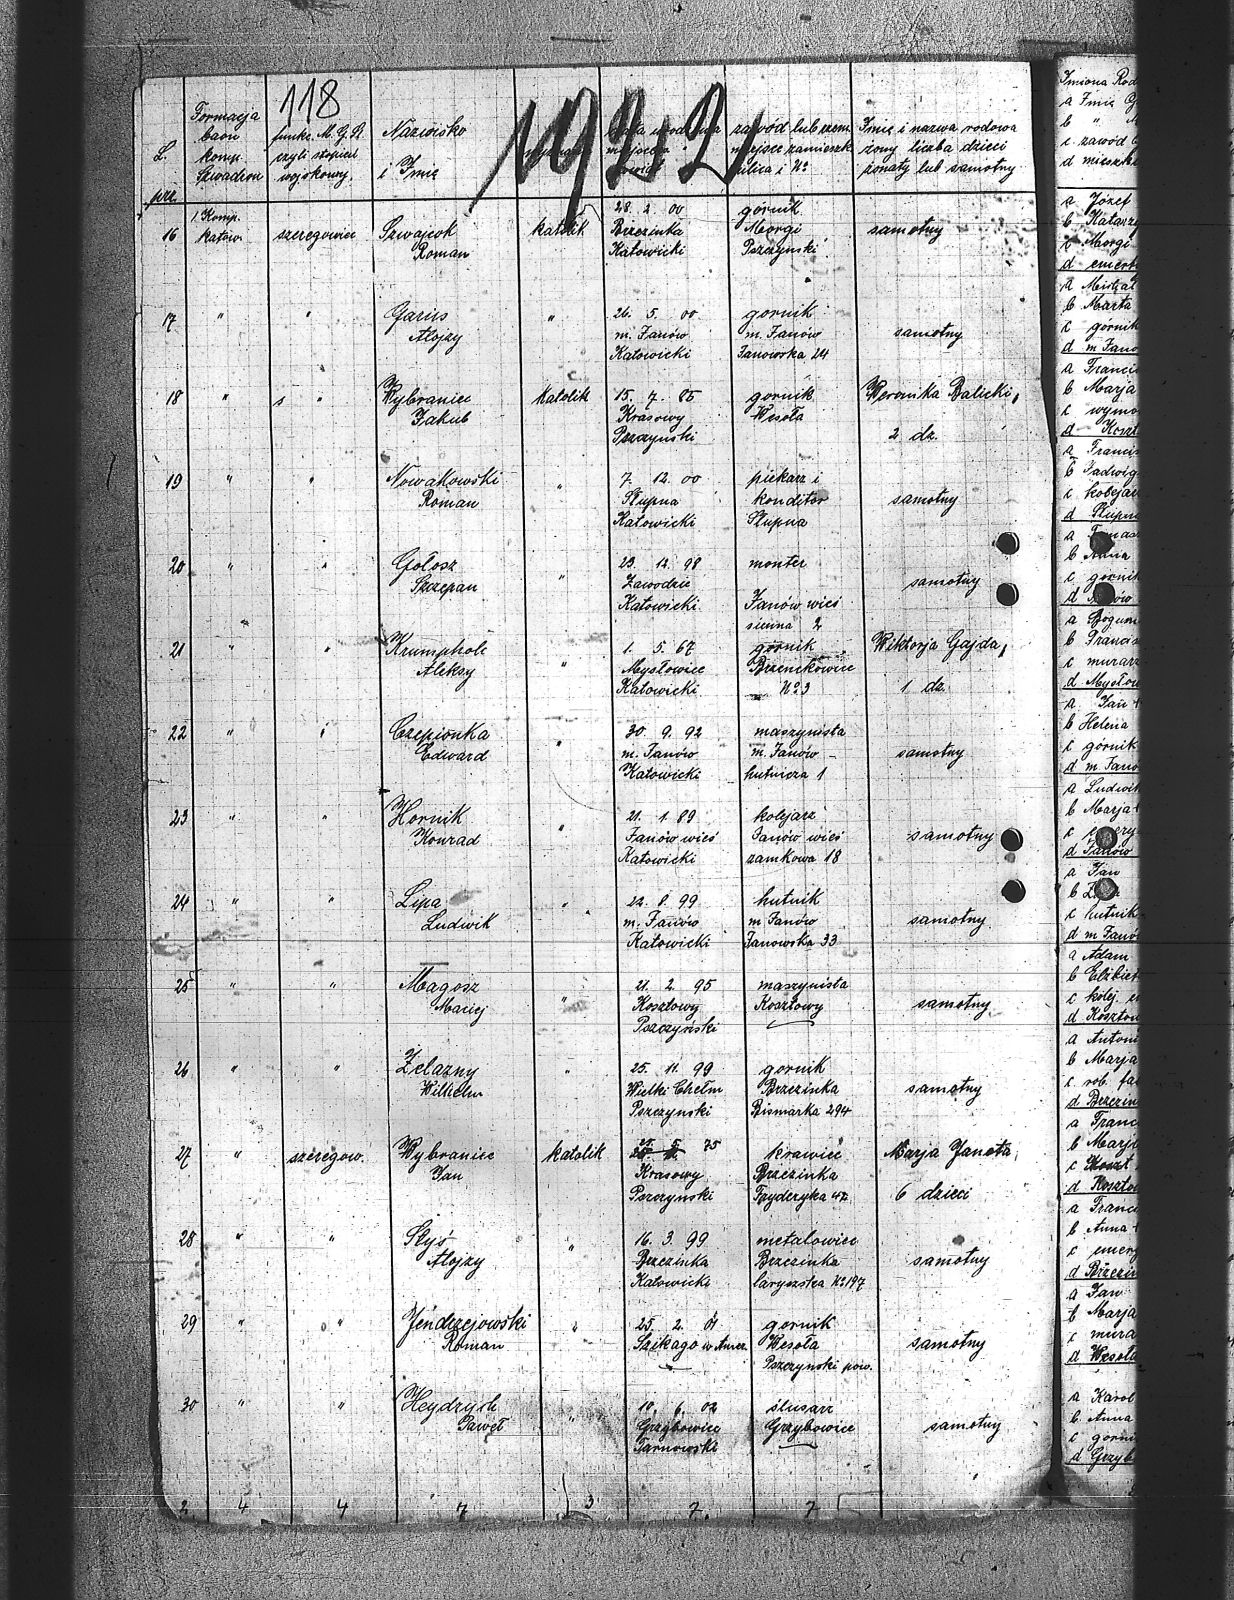 118
1922
L. prz.
Formacja baon komp. Szwadron
funks. M. G. R. czyli stopień wojskowy.
Nazwisko i Imię
zawód lub rzem. miejsce zamieszk ulica i No
Imię i nazwa rodowa żony liczba dzieci żonaty lub samotny
1 Komp. 28. 2. 00 górnik
16 katow. szeregowiec Szwajcok katolik Brzezinka Morgi samotny
Roman Katowicki Pszczyński
17 " " Garus " 26. 5. 00 gornik
Alojzy m. Janów m. Janów samotny
Katowicki Janowska 24
18 " " Wybraniec Katolik 15. 7. 85 gornik Weronika Dalicki,
Jakub Krasowy Wesoła
Pszczyński 2 dz.
19 " " Nowakowski " 7. 12. 00 piekarz i
Roman Słupna konditor samotny
Katowicki Słupna
20 " " Gołosz " 23. 12. 98 monter
Szczepan Zawodzie samotny
Katowicki Janów wieś
sienna 2
21 " " Krumpholc " 1. 5. 67 górnik Wiktorja Gajda,
Aleksy Mysłowice Brzenskowice
Katowicki No 3 1 dz.
22 " " Czepionka " 30. 9. 92 maszynista
Edward m. Janów m. Janów samotny
Katowicki hutnicza 1
23 " " Hornik " 21. 1 89 kolejarz
Konrad Janów wieś Janów wieś samotny
Katowicki zamkowa 18
24 " " Lipa " 22. 8. 99 hutnik
Ludwik m. Janów m. Janów samotny
Katowicki Janowska 33
25 " " Magosz " 21. 2. 95 maszynista
Maciej Kosztowy Kosztowy samotny
Pszczyński
26 " " Żelazny " 25. 11. 99 gornik
Wilhelm Wielki Chełm Brzezinka samotny
Pszczynski Bismarka 294
27 " szeregow. Wybraniec katolik 75 krawiec Marja Janota,
Jan Krasowy Brzezinka
Pszczynski Fryderyka 42 6 dzieci
28 " " Słyś " 16. 3. 99 metalowiec
Alojzy Brzezinka Brzezinka samotny
Katowicki No 197
29 " " Jendrzejowski " 25. 2. 01 gornik
Roman Szikago w Amer. Wesoła samotny
Pszczynski pow.
30 " " Heydrych " 10. 6. 02 ślusarz
Paweł Grzybowice Grzybowice samotny
Tarnowski
2 4 4 7 3 7 7
Imiona Rod
a Imię
b "
c zawód
d mieszk
a Józef
b Katarz
c Morgi
d emeryt
a Michał
b Marta
c górnik
d m Jano
a Franci
b Marja
c wymo
d Koszt
a Francis
b Jadwig
c kolejar
d Słupna
a Tomas
b Anna
c gornik
d Janów
a Bogum
b Francis
c murarz
d Mysłow
a Jan +
b Helena
c górnik
d m. Jano
a Ludwik
b Marja +
d Janów
a Jan
c hutnik
d m Janów
a Adam
b Elżbiet
c kolej.
d Kosztow
a Antoni
b Marja
c rob. fa
d Brzezin
a Franc
b Marja
c Koszt
d Koszto
a Franci
b Anna +
c emery
d Brzezin
a Jan
b Marja
c mura
d Wesoła
a Karol
b Anna
c gorni
d Grzyb